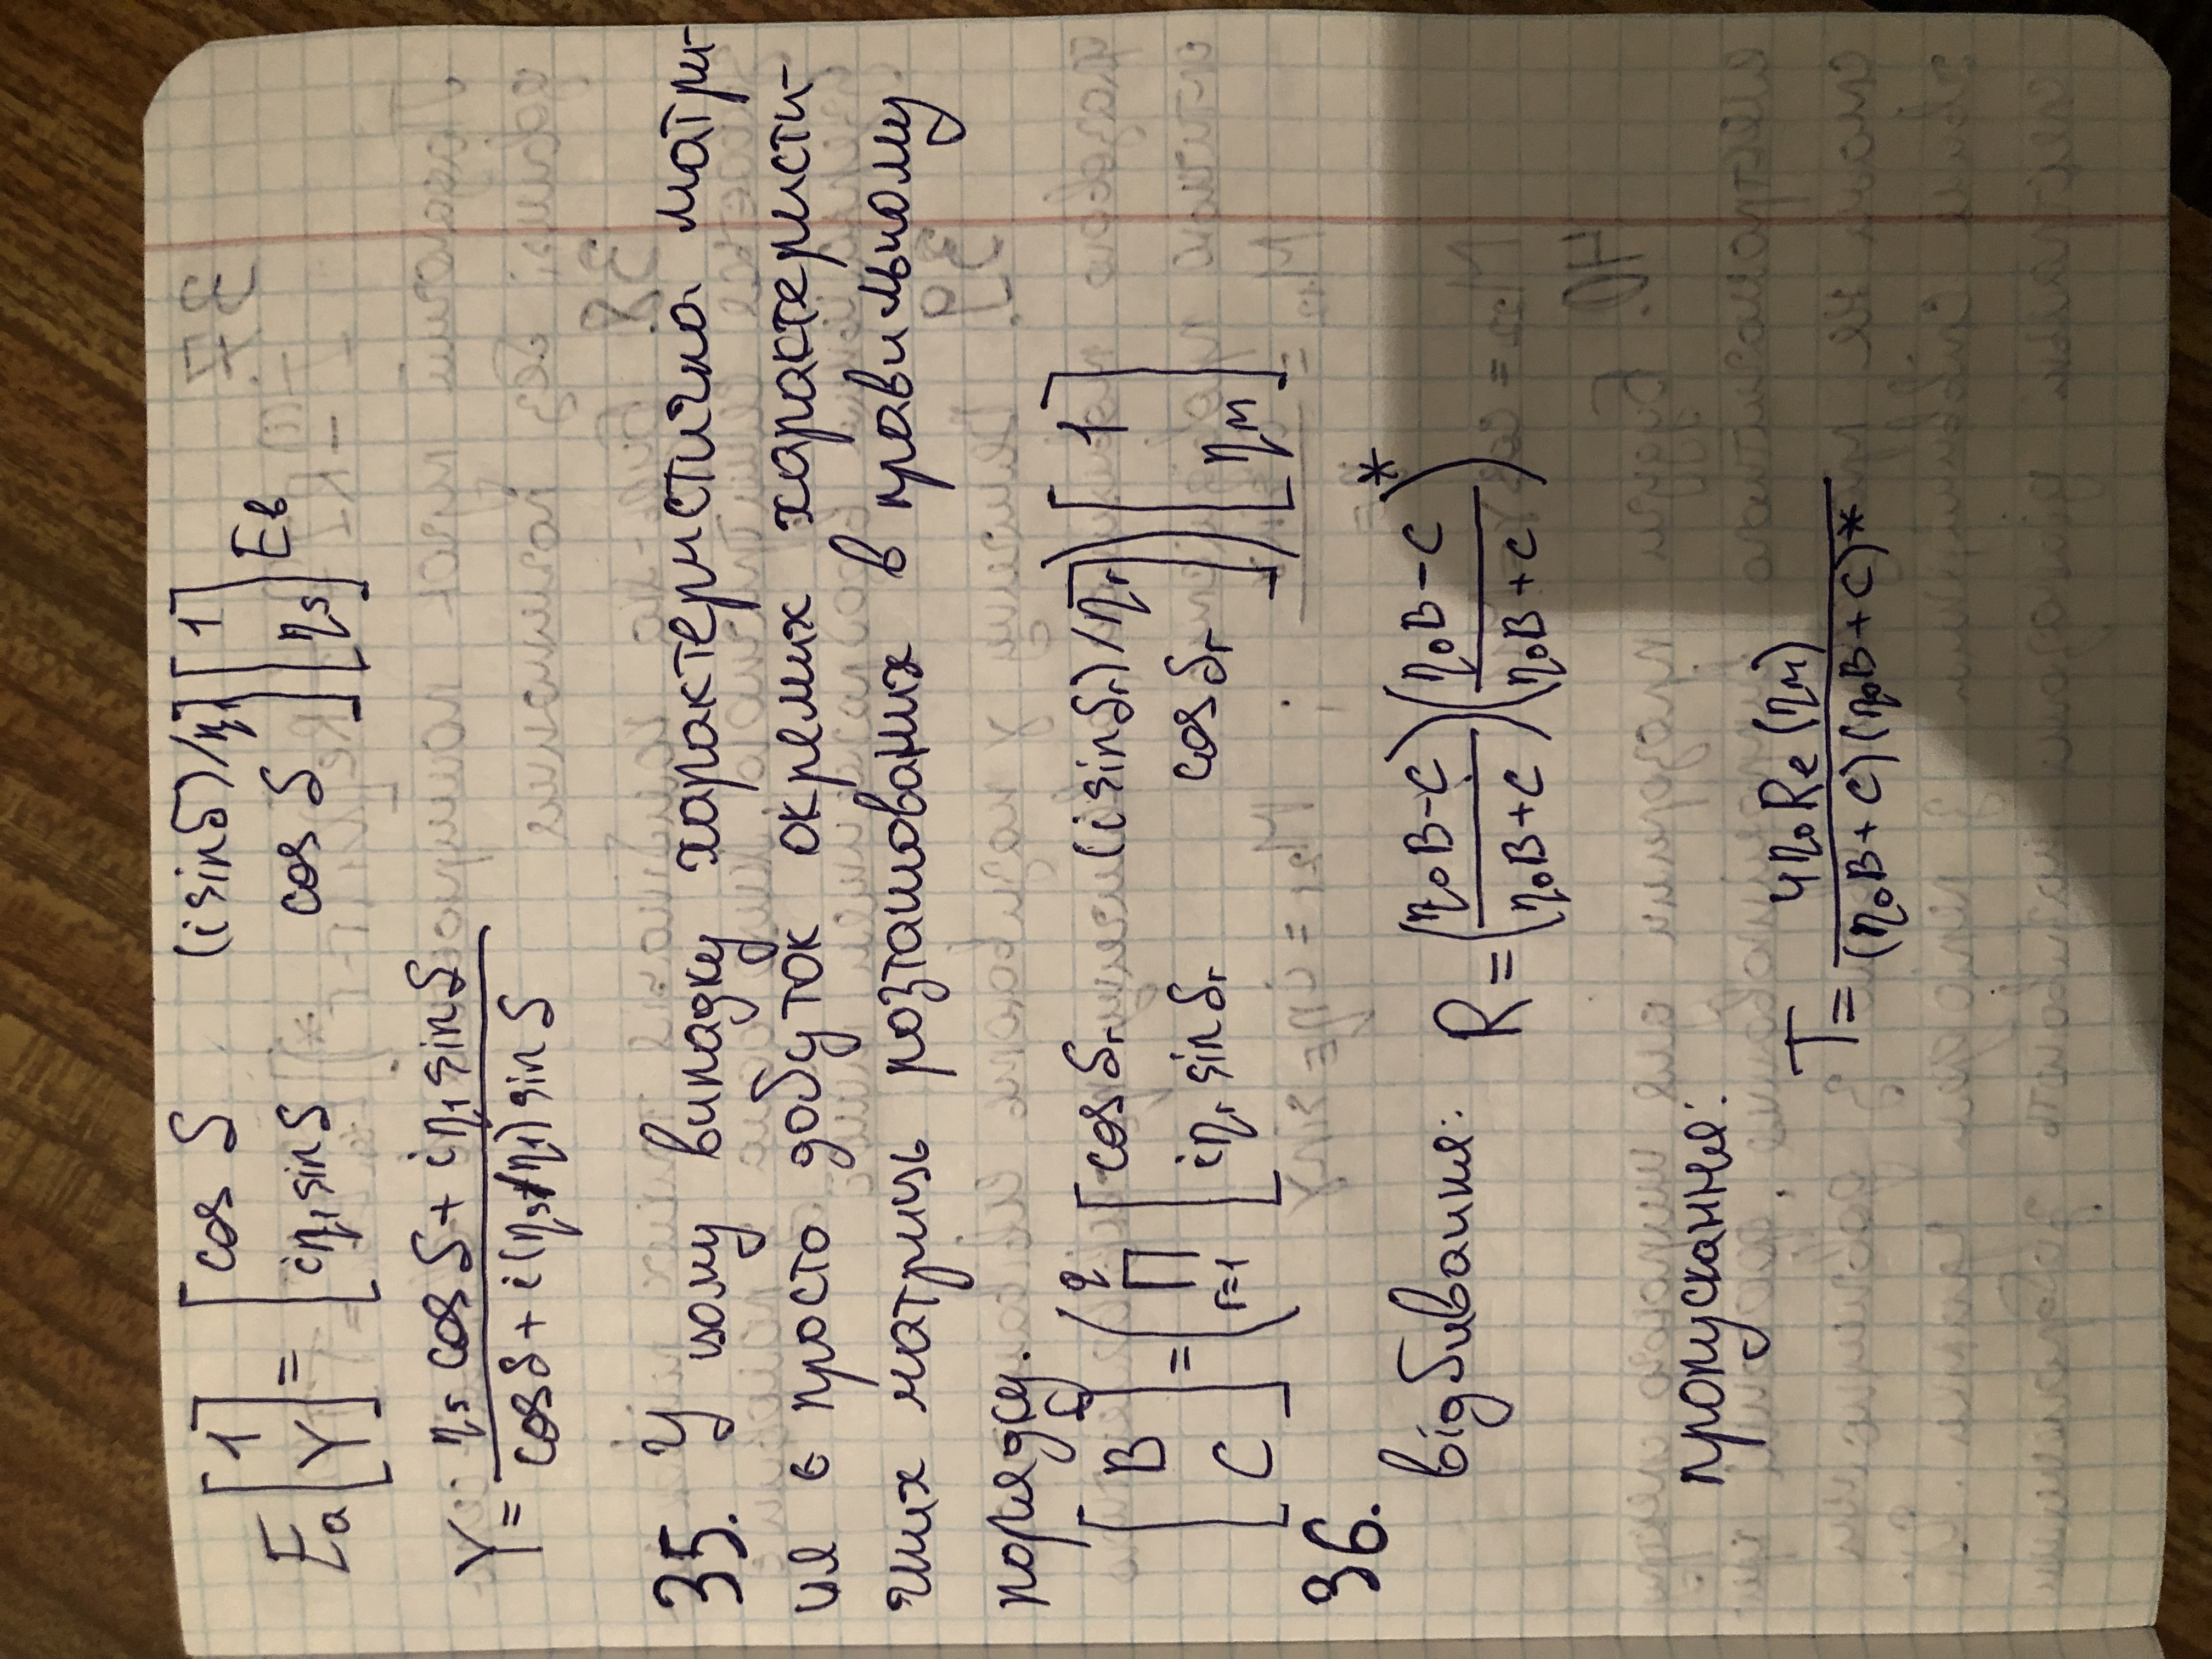 Eₐ [1 Y] = [cos δ (i sin δ)/η₁ iη₁ sin δ cos δ] [1 ηₛ] Eв
Y = (ηₛ cos δ + iη₁ sin δ) / (cos δ + i(ηₛ/η₁) sin δ)
35. У цьому випадку характеристична матри-
ця є просто добуток окремих характеристи-
чних матриць розташованих в правильному
порядку.
[B C] = (∏ r=1 q [cos δᵣ (i sin δᵣ)/ηᵣ iηᵣ sin δᵣ cos δᵣ]) [1 ηм]
36.
відбивання: R = ((η₀B − C)/(η₀B + C)) ((η₀B − C)/(η₀B + C))*
пропускання:
T = 4η₀Re(ηм) / (η₀B + C)(η₀B + C)*